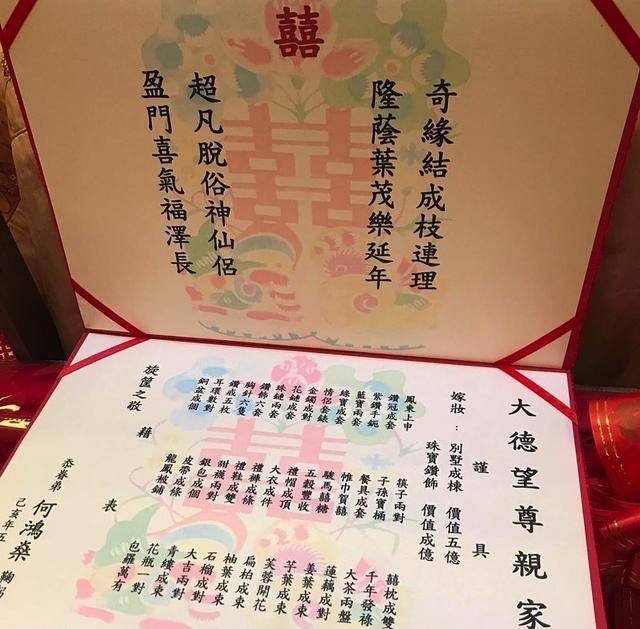 囍
奇緣結成枝連理
隆蔭葉茂樂延年
超凡脫俗神仙侶
盈門喜氣福澤長
大德望尊親家
謹具
嫁妝：別墅成棟 價值五億
珠寶鑽飾 價值成億
鳳東上申
筷子兩對
囍枕成雙
鑽冠成套
子孫寶桶
千年發祿
紫鑽手鈪
餐具成套
大茶兩盤
藍寶兩套
帷巾賀囍
蓮藕成對
綠寶成套
駿馬囍糖
姜葉成束
情侶套錶
五穀豐收
芋葉成束
金鐲成對
禮帽成頂
芙蓉開花
花鏈成套
大衣成件
扁柏成束
珠鏈兩套
禮褲成條
柚葉成束
鑽飾六套
禮鞋成雙
石榴成對
胸針六隻
甜襪兩對
大吉兩對
鑽戒五枚
銀包成個
青縷成束
耳環數對
皮帶成條
花瓶一對
銅盆成個
龍鳳被鋪
包羅萬有
旋筐之敬
藉
表
忝眷弟 何鴻燊 鞠躬
己亥年五